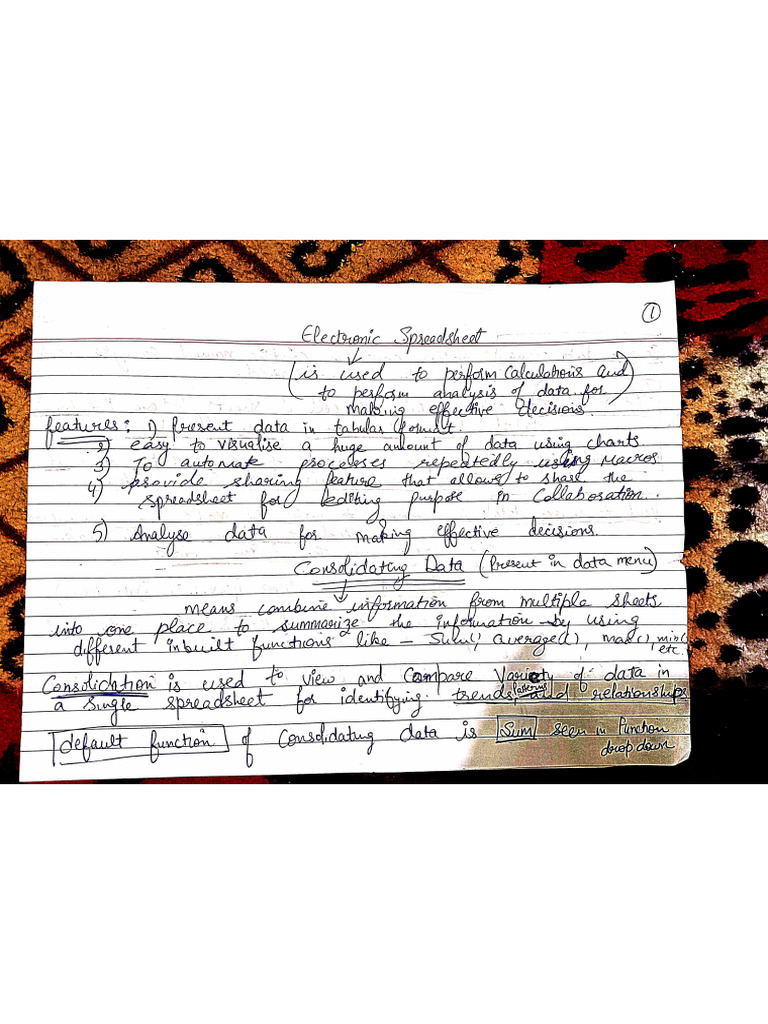 ①
Electronic Spreadsheet
(is used to perform calculations and)
to perform analysis of data for
making effective decisions.
features: 1) Present data in tabular format.
2) easy to visualise a huge amount of data using charts
3) To automate processes repeatedly using Macros
4) provide sharing feature that allows to share the
spreadsheet for editing purpose in collaboration.
5) Analyse data for making effective decisions.
Consolidating Data (Present in data menu)
means combine information from multiple sheets
into one place to summarize the information by using
different inbuilt functions like - Sum(), average(), max(), min()
etc.
Consolidation is used to view and Compare Variety of data in
a single spreadsheet for identifying trends, patterns and relationships
default function of Consolidating data is Sum seen in Function
drop down